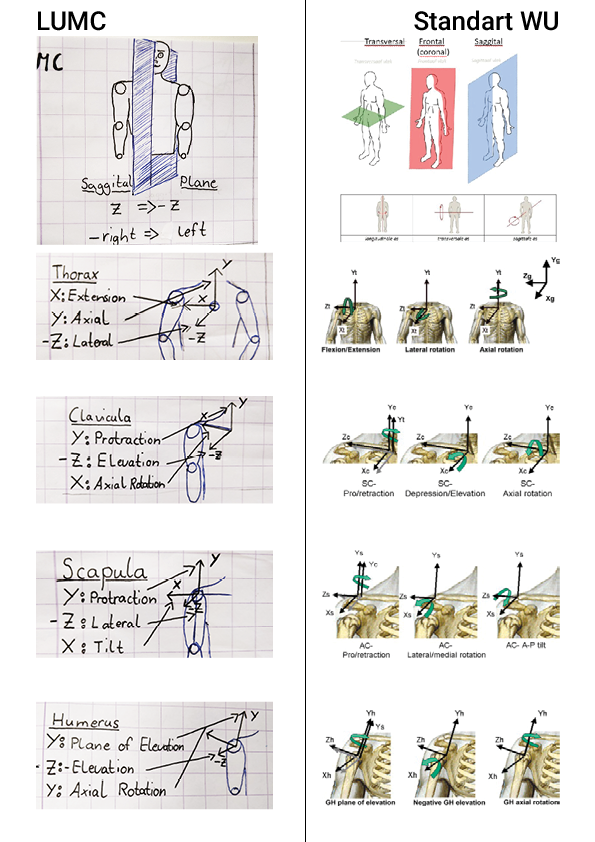 LUMC
MC
Saggital Plane
Z => -Z
-right => left
Thorax
X: Extension
Y: Axial
-Z: Lateral
Y
X
-Z
Clavicula
Y: Protraction
-Z: Elevation
X: Axial Rotation
X
Y
-Z
Scapula
Y: Protraction
-Z: Lateral
X: Tilt
Y
X
-Z
Humerus
Y: Plane of Elevation
-Z:-Elevation
Y: Axial Rotation
Y
-Z
Standart WU
Transversal Frontal Saggital
(coronal)
Yt Yt Yt Yg
Zg
Xg
Zt Zt Zt
Xt Xt Xt
Flexion/Extension Lateral rotation Axial rotation
Yc Yc Yc
Yt
Zc Zc Zc
Xc Xc Xc
SC- SC- SC-
Pro/retraction Depression/Elevation Axial rotation
Ys Ys Ys
Yc
Zs Zs Zs
Xs Xs Xs
AC- AC- AC- A-P tilt
Pro/retraction Lateral/medial rotation
Yh Yh Yh
Ys
Zh Zh Zh
Xh Xh Xh
GH plane of elevation Negative GH elevation GH axial rotation